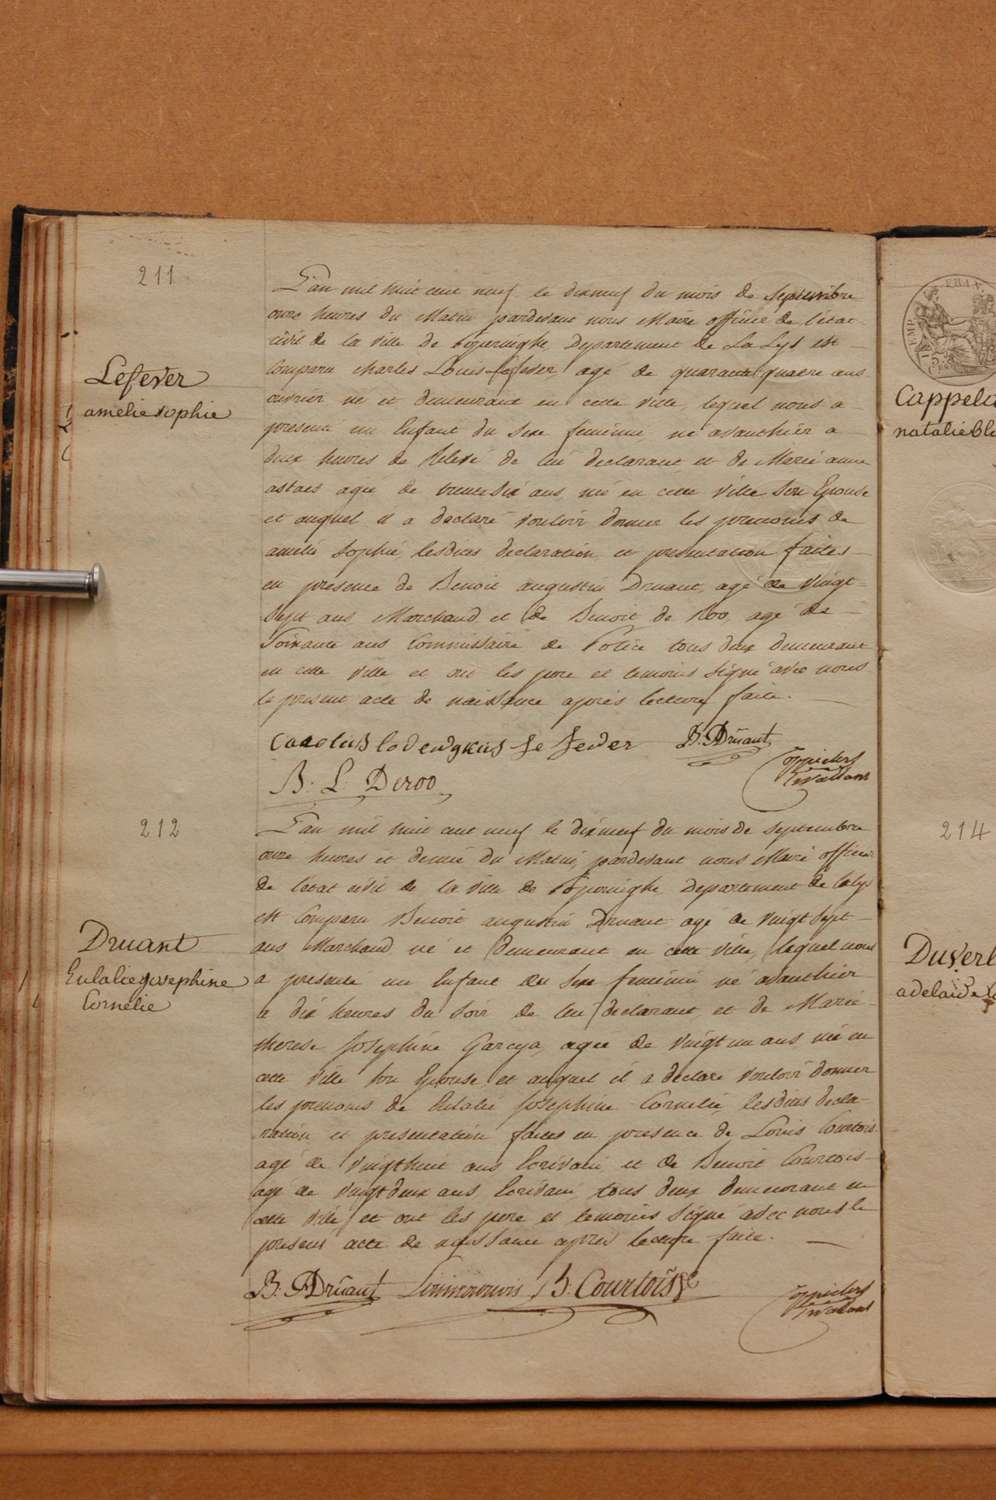 211
Lefever
amelie sophie
L'an mil huit cent neuf le dixneuf du mois de Septembre
onze heures du Matin pardevant nous Maire officier de l'état
civil de la ville de Poperinghe departement de La Lys est
comparu charles Louis Lefever, agé de quarante quatre ans
ouvrier né et demeurant en cette ville, lequel nous a
presenté un Enfant du sexe feminin né avanthier a
deux heures de Relevé de lui declarant et de Marie anne
astaes agée de trente six ans née en cette ville son Epouse
et auquel il a declaré vouloir donner les prenoms de
amelie Sophie lesdites declaration et presentation faites
en présence de Benoit augustin Druant, agé de vingt
Sept ans Marchand et de Benoit de Roo, agé de
Soixante ans Commissaire de Police tous deux demeurant
en cette ville et ont les pere et temoins signé avec nous
le present acte de naissance après lecture faite.
Carolus lodewykus le fever B. A. Druant
B. L. Deroo
212
Druant
Eulalie josephine
Cornelie
L'an mil huit cent neuf le dixneuf du mois de Septembre
onze heures et demie du Matin pardevant nous Maire officier
de l'etat civil de la ville de Poperinghe departement de la Lys
est Comparu Benoit augustin Druant agé de vingt sept
ans Marchand né et demeurant en cette ville, lequel nous
a presenté un Enfant du sexe feminin né avanthier
a dix heures du soir de lui declarant et de Marie
therese Josephine Garcya, agée de vingt un ans née en
cette ville son Epouse et auquel il a declaré vouloir donner
les prenoms de Eulalie Josephine Cornelie lesdites decla-
ration et presentation faites en presence de Louis Courtois
agé de vingt huit ans Ecrivain et de Benoit Courtois
agé de vingt deux ans Ecrivain tous deux demeurant en
cette ville et ont les pere et temoins signé avec nous le
present acte de naissance après lecture faite.
B. A. Druant B. Courtois
Cappel
natalie
214
Duverl
adelaide